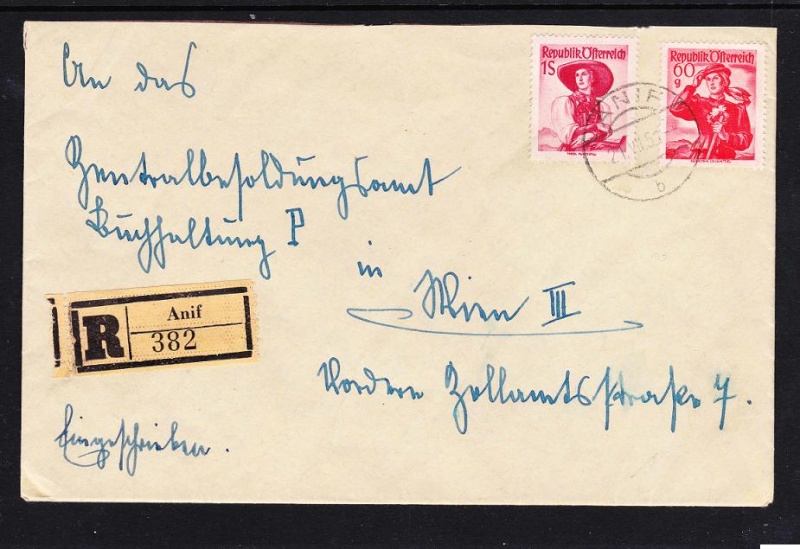 An das
Zentralbesoldungsamt
Buchhaltung P
in
Wien III
Vordere Zollamtsstraße 7.
Eingeschrieben.
R
Anif
382
Republik Österreich
1S
Republik Österreich
60
g
ANIF
b